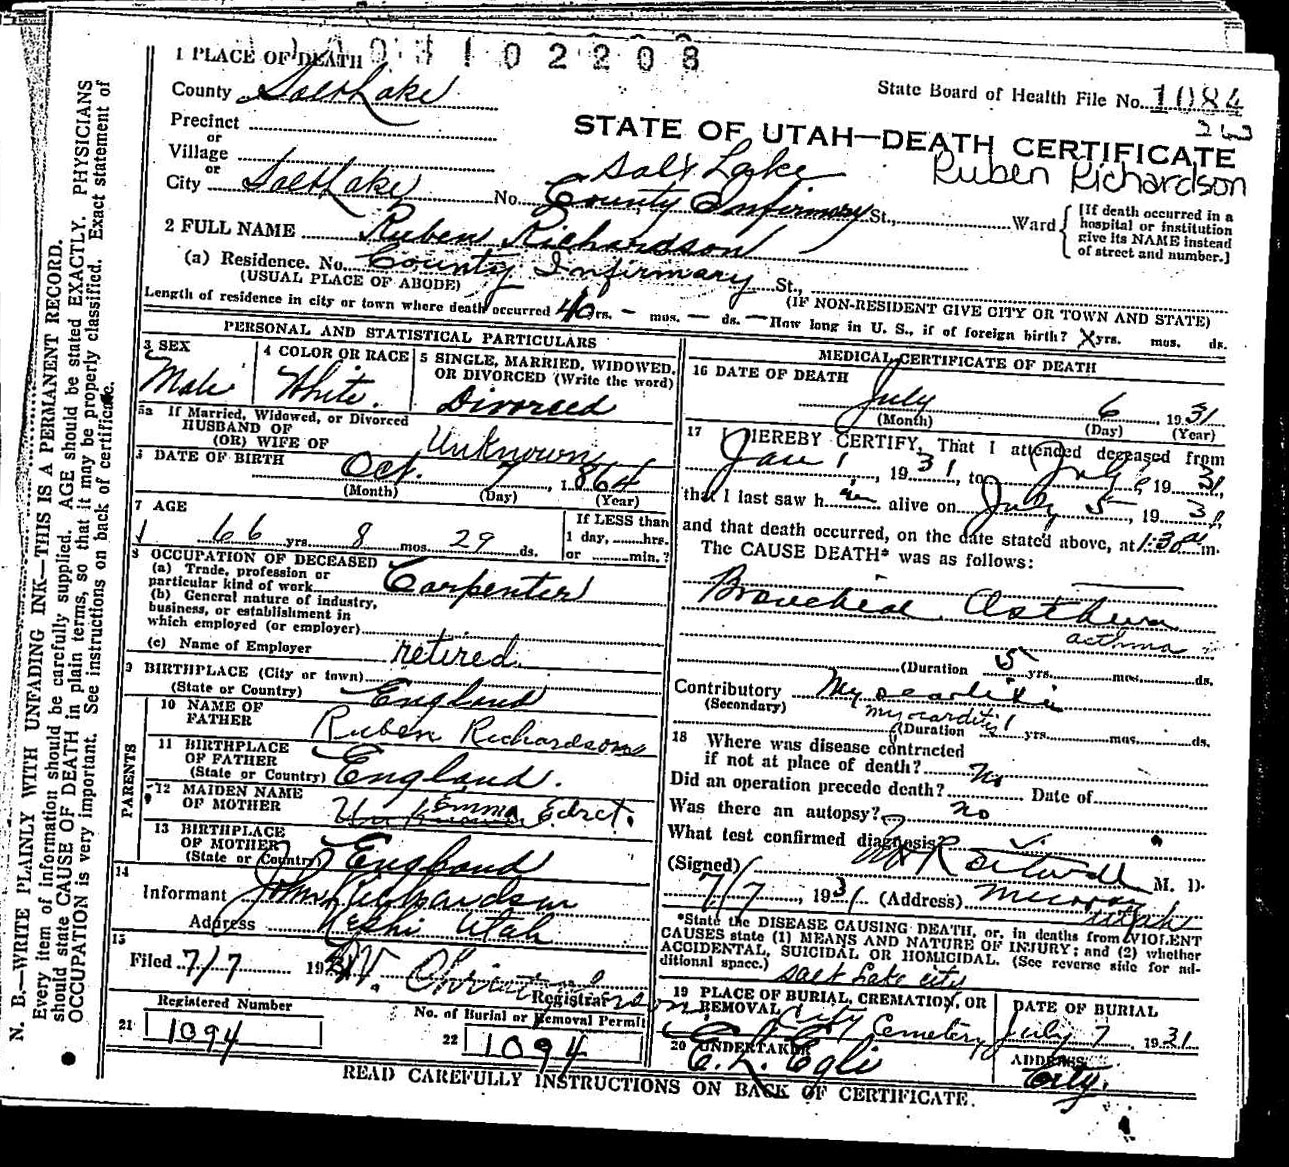 N. B.—WRITE PLAINLY WITH UNFADING INK—THIS IS A PERMANENT RECORD.
Every item of information should be carefully supplied. AGE should be stated EXACTLY. PHYSICIANS
should state CAUSE OF DEATH in plain terms, so that it may be properly classified. Exact statement of
OCCUPATION is very important. See instructions on back of certificate.
3102208
1 PLACE OF DEATH
State Board of Health File No. 1084
County Salt Lake
263
Precinct
STATE OF UTAH—DEATH CERTIFICATE
or
Village
Ruben Richardson
or
Salt Lake
City Salt Lake No. County Infirmary St., Ward
[If death occurred in a
hospital or institution
give its NAME instead
of street and number.]
2 FULL NAME Ruben Richardson
(a) Residence. No. County Infirmary St.,
(USUAL PLACE OF ABODE)
(IF NON-RESIDENT GIVE CITY OR TOWN AND STATE)
Length of residence in city or town where death occurred 40 yrs. — mos. — ds. — How long in U. S., if of foreign birth? X yrs. mos. ds.
PERSONAL AND STATISTICAL PARTICULARS
3 SEX
Male
4 COLOR OR RACE
White.
5 SINGLE, MARRIED, WIDOWED,
OR DIVORCED (Write the word)
Divorced
5a If Married, Widowed, or Divorced
HUSBAND OF
(OR) WIFE OF Unknown
6 DATE OF BIRTH
Oct. 7, 1864
(Month) (Day) (Year)
7 AGE
66 yrs. 8 mos. 29 ds.
If LESS than
1 day, hrs.
or min.?
8 OCCUPATION OF DECEASED
(a) Trade, profession or
particular kind of work Carpenter
(b) General nature of industry,
business, or establishment in
which employed (or employer)
(c) Name of Employer retired
9 BIRTHPLACE (City or town)
(State or Country) England
PARENTS
10 NAME OF
FATHER Ruben Richardson
11 BIRTHPLACE
OF FATHER
(State or Country) England.
12 MAIDEN NAME
OF MOTHER Unknown Emma
13 BIRTHPLACE
OF MOTHER
(State or Country) England
14
Informant John Richardson
Address Nephi Utah
15
Filed 7/7 1931
Registrar
Registered Number
21 1094
No. of Burial or Removal Permit
22 1094
MEDICAL CERTIFICATE OF DEATH
16 DATE OF DEATH
July 6 1931
(Month) (Day) (Year)
17 I HEREBY CERTIFY, That I attended deceased from
Jan 1, 1931, to July 6, 1931,
that I last saw him alive on July 5, 1931,
and that death occurred, on the date stated above, at 1:30 m.
The CAUSE DEATH* was as follows:
Broncheal Asthma
asthma
(Duration 5 yrs. mos. ds.
Contributory Myocarditis
(Secondary) myocarditis
(Duration yrs. mos. ds.
18 Where was disease contracted
if not at place of death? No
Did an operation precede death? Date of
Was there an autopsy? No
What test confirmed diagnosis?
(Signed) M. D.
7/7, 1931. (Address) Murray
Utah
*State the DISEASE CAUSING DEATH, or, in deaths from VIOLENT
CAUSES state (1) MEANS AND NATURE OF INJURY; and (2) whether
ACCIDENTAL, SUICIDAL OR HOMICIDAL. (See reverse side for ad-
ditional space.)
Salt Lake city
19 PLACE OF BURIAL, CREMATION, OR
REMOVAL City Cemetery
DATE OF BURIAL
July 7 1931
20 UNDERTAKER
E. L. Egli
ADDRESS
City.
READ CAREFULLY INSTRUCTIONS ON BACK OF CERTIFICATE.